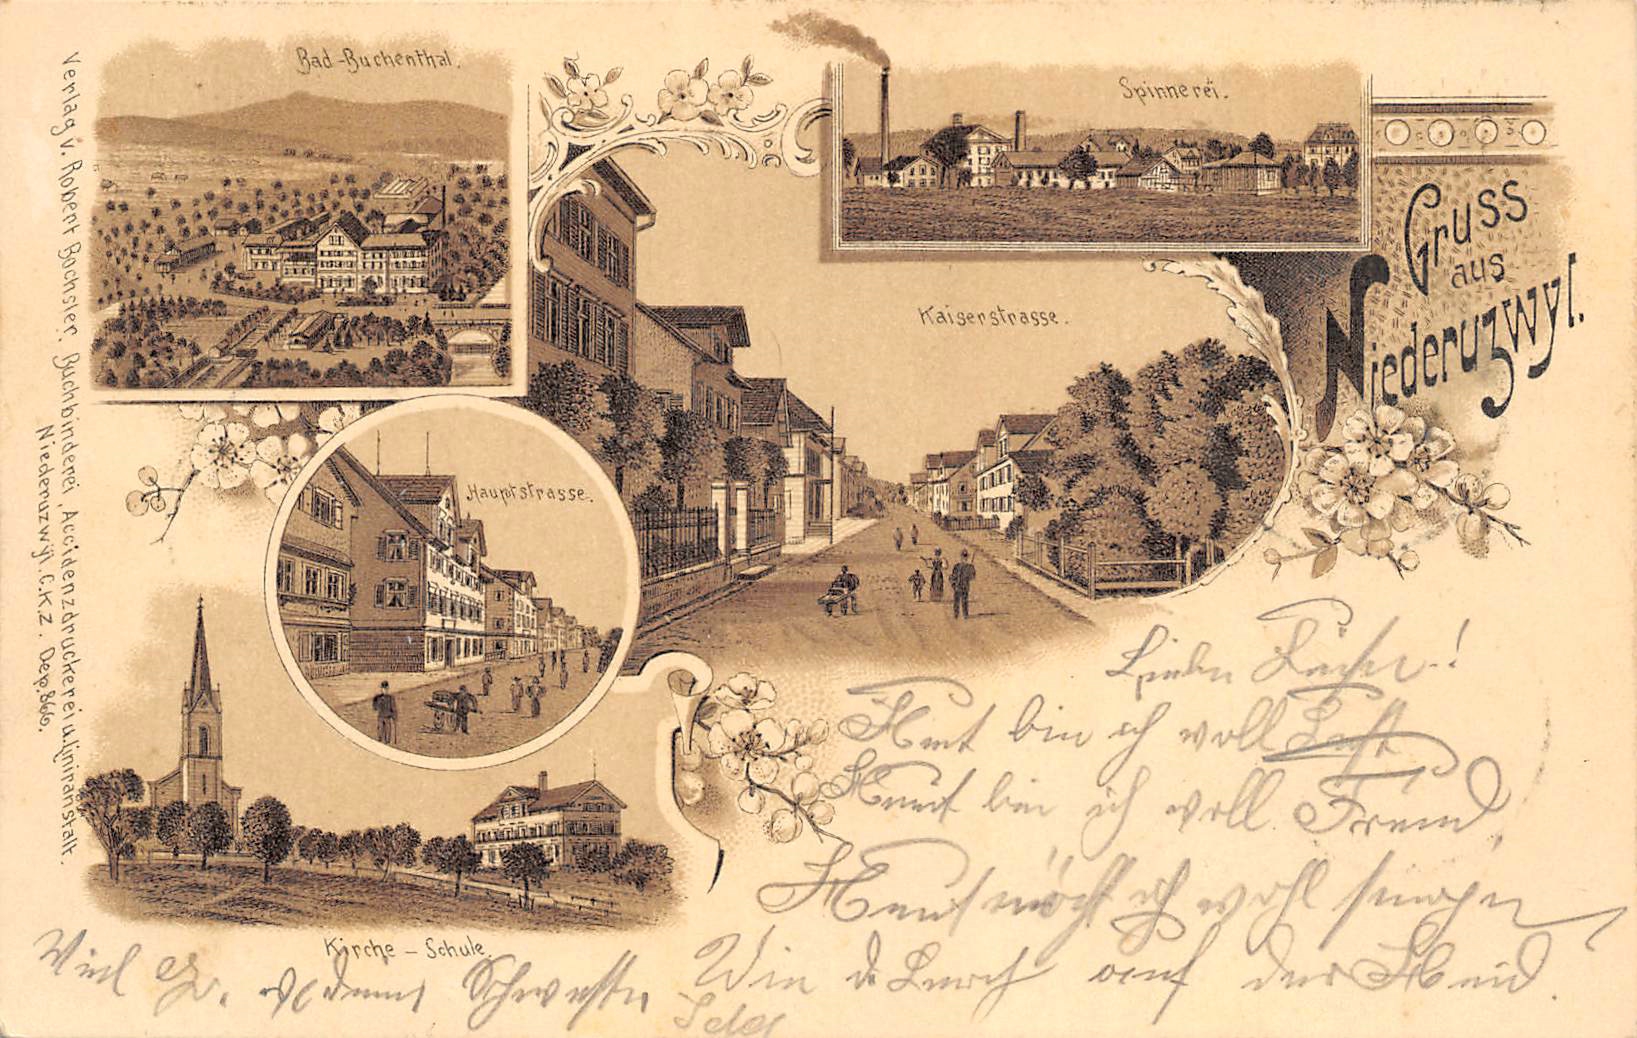 Bad-Buchenthal.
Spinnerei.
Gruss
aus
Niederuzwyl.
Kaiserstrasse.
Hauptstrasse.
Kirche - Schule.
Verlag v. Robert Bochsler. Buchbinderei, Accidenzdruckerei u. Liniranstalt.
Niederuzwÿl C.K.Z. Dep. 866.
Heut bin ich voll Lust
Heut bin ich voll Freud,
Heut möcht ich wohl singen
Wie d. Lerch auf der Heid.
Viel Gr. v. deiner Schwester